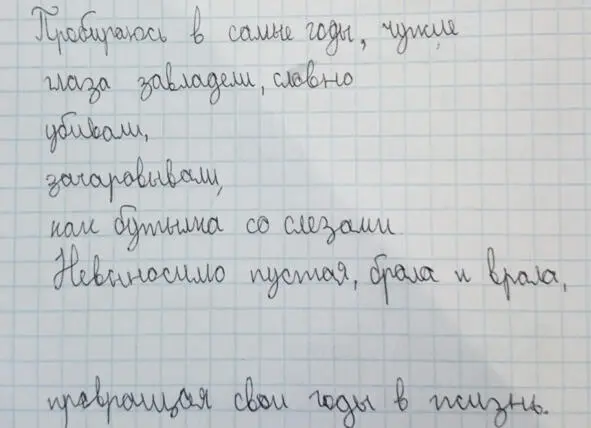 Пробираюсь в самые годы, чужие
глаза завладели, словно
убивали,
зачаровывали,
как бутылка со слезами
Невыносимо пустая, брала и врала,
превращая свои годы в жизнь.